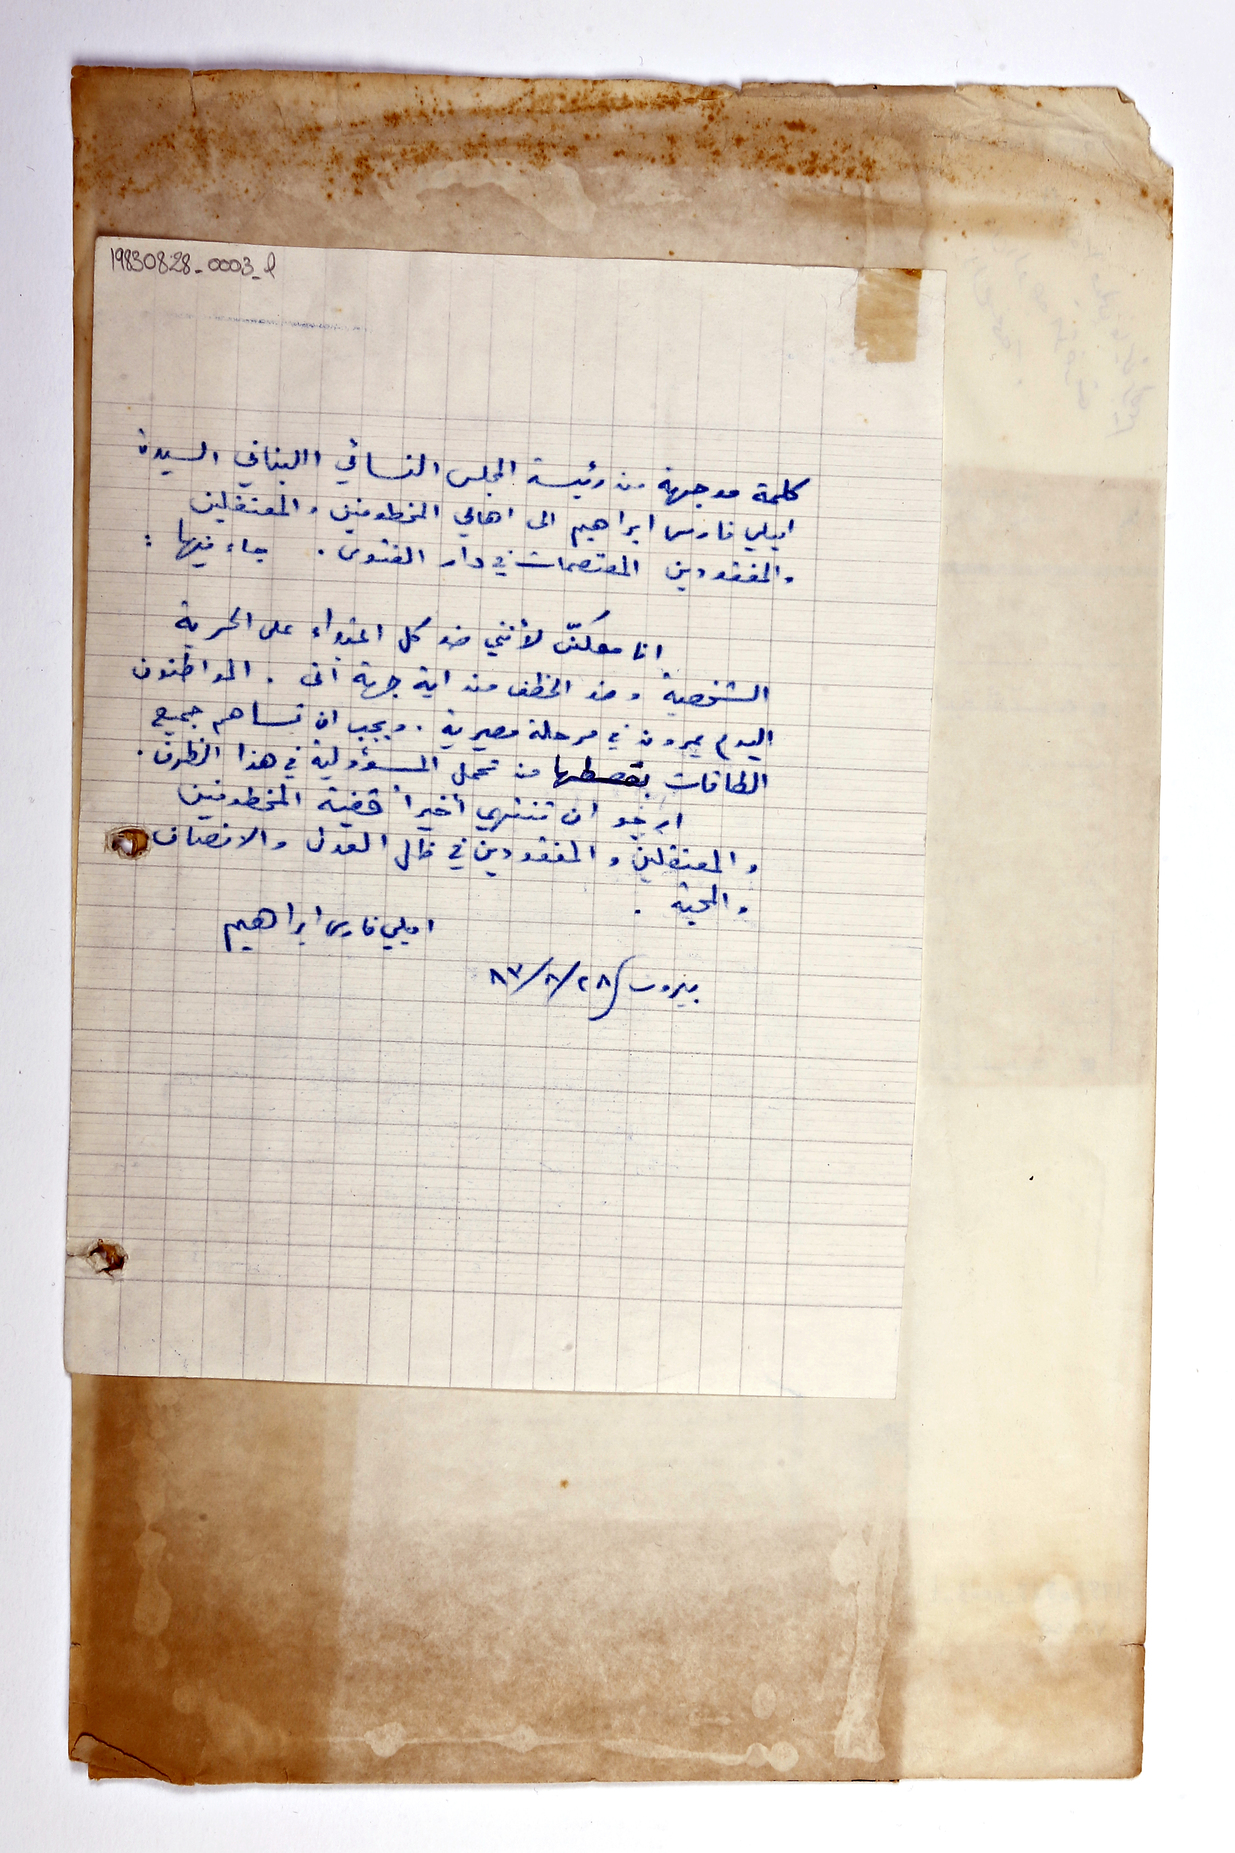 19830828_0003_l
كلمة موجهة من رئيسة المجلس النسائي اللبناني السيدة
اميلي فارس ابراهيم الى اهالي المخطوفين والمعتقلين
والمفقودين المعتصمات في دار الفتوى. جاء فيها :
انا معكنّ لأنني ضد كل اعتداء على الحرية
الشخصية وضد الخطف من اية جهة أتى . المواطنون
اليوم يمرون في مرحلة مصيرية . ويجب ان تساهم جميع
الطاقات بقسطها من تحمل المسؤولية في هذا الظرف .
ارجو ان تنتهي أخيراً قضية المخطوفين
والمعتقلين والمفقودين في ظل العدل والانصاف
والمحبة .
اميلي فارس ابراهيم
بيروت ٢٨/٨/٨٣